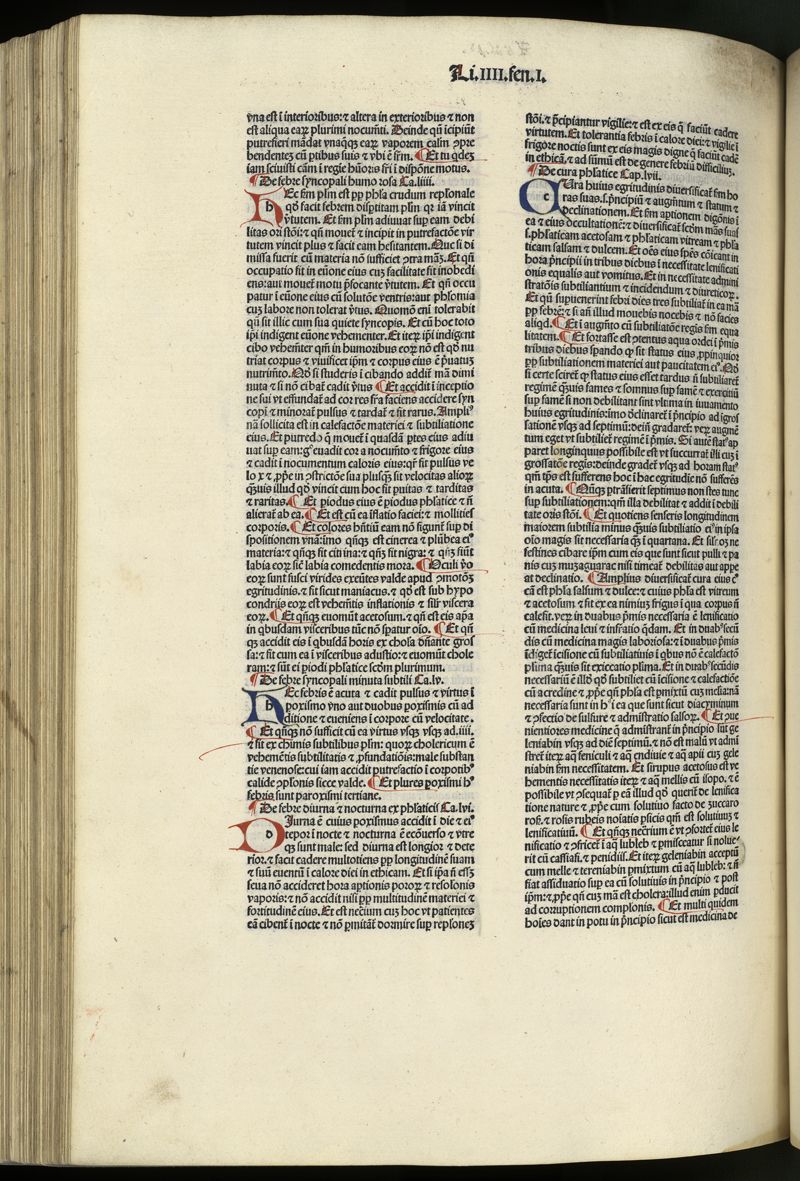 Li.IIII.fen.I.
vna est ī interioribus: ⁊ altera in exterioribus ⁊ non
est aliqua earꝝ plurimi nocumīti. Deinde qn̄ īcipiūt
putrefieri mādat vnaqꝫqꝫ earꝝ vaporem
bendentez cū ptibus suis ⁊ vbi ē Et tu
iam sciuisti cām ī regie hūoris motus.
¶ De febre syncopali humorosa Ca.liiii.
Ec pl̄m est pp phl̄a crudum
qd̓ facit febrem plīm qꝛ iā vincit
v̄tutem. Et pl̄m adiuuat suꝑ eam debi
litas oris stōi: ⁊ qn̄ mouet̄ ⁊ incipit in putrefactōe vir
tutem vincit plus ⁊ facit eam hesitantem. Que si di
missa fuerit cū materia nō sufficiet ꝯtra Et qn̄
occupatio fit in eūone eius cuꝫ facilitate fit inobedi
ens: aut mouet̄ motu p̄focante v̄tutem. Et qn̄ occu
patur ī eūone eius cū solutōe ventris: aut phl̄omia
cuꝫ labore non tolerat v̄tus. Quomō eni tolerabit
qn̄ fit illic cum sua quiete syncopis. Et cū hoc toto
ip̄i indigent eūone vehementer. Et iteꝝ ip̄i indigent
cibo vehemēter qm̄ in humoribus eorꝝ nō est qd̓ nu
triat corpus ⁊ viuificet ip̄m ⁊ corpus eius ē p̄uatuꝫ
nutrim̄to. Nō si studeris ī cibando addit̄ mā dimi
nuta ⁊ si nō cibat̄ cadit v̄tus ¶ Et accidit ī inceptio
ne sui vt effundat̄ ad cor res fr̄a faciens accidere syn
copi ⁊ minorat̄ pulsus ⁊ tardat̄ ⁊ fit rarus. Ampli⁹
nā sollicita est in calefactōe materiei ⁊ subtiliatione
eius. Et putredo q̄ mouet̄ ī quasdā ptes eius adiu
uat suꝑ eam: gͦ euadit cor a nocumēto ⁊ frigore eius
⁊ cadit ī nocumentum caloris eius: qꝛ fit pulsus ve
lox ⁊ ꝓpe in ꝯstrictōe sua plusqꝫ fit velocitas alioꝝ
qꝫuis illud qd̓ vincit cum hoc fit puitas ⁊ tarditas
⁊ raritas. ¶ Et piodus eius ē piodus phl̄atice ⁊ nō
alterat̄ ab ea. ¶ Et est cū ea īflatio faciei: ⁊ mollities
corporis. ¶ Et colores hn̄tiū eam nō figunt̄ suꝑ di
spositionem vnā: īmo qn̄qꝫ est cinerea ⁊ plūbea ei⁹
materia: ⁊ qn̄qꝫ fit citrina: ⁊ qn̄qꝫ fit nigra: ⁊ qn̄qꝫ fiūt
labia eorꝝ sic̄ labia comedentis mora. ¶ Oculi v̄o
eorꝝ sunt fusci virides exeūtes valde apud ꝯmotōꝫ
egritudinis. ⁊ fit sicut maniacus. ⁊ qd̓ est sub hypo
condrijs eorꝝ est vehemētis inflationis ⁊ silr̄ viscera
eorꝝ. ¶ Et qn̄qꝫ euomūt acetosum. ⁊ qn̄ est eis
in qbusdam visceribus tūc nō spatur oīo. ¶ Et qn̄
qꝫ accidit eis ī qbusdā horis ex chol̄a dn̄ante gros
sa: ⁊ fit cum ea ī visceribus adustio: ⁊ euomūt chole
ram: ⁊ sūt ei piodi phl̄atice scd̄m plurimum.
¶ De febre syncopali minuta subtili Ca.lv.
Ec febris ē acuta ⁊ cadit pulsus ⁊ virtus ī
poxismo vno aut duobus poxismis cū ad
ditione ⁊ eueniens ī corpore cū velocitate.
¶ Et qn̄qꝫ nō sufficit cū ea virtus vsqꝫ vsqꝫ ad.iiii.
⁊ fit ex chimis subtilibus pl̄im: quoꝝ cholericum ē
vehemētis subtilitatis ⁊ ꝓfundatiōis: male substan
tie venenose: cui iam accidit putrefactio ī corporib⁹
calide ꝯplōnis sicce valde. ¶ Et plures poxismi h⁹
febris sunt paroxismi tertiane.
¶ De febre diurna ⁊ nocturna ex phl̄aticis Ca.lvi.
Iurna ē cuius poxismus accidit ī die ⁊ ei⁹
tepor ī nocte ⁊ nocturna ē ecōuerso ⁊ vtre
qꝫ sunt male: sed diurna est longior ⁊ dete
rior. ⁊ facit cadere multotiens ꝓp longitudinē suam
⁊ suū euentū ī calore diei in ethicam. Et si ip̄a n̄ essꝫ
seua nō accideret hora aptionis pororꝝ ⁊ resol̄onis
vaporis: ⁊ nō accidit nisi ꝓp multitudinē materiei ⁊
fortitudinē eius. Et est nec̄ium cuꝫ hoc vt patientes
eā cibent̄ ī nocte ⁊ nō p̄mitāt̄ dormire suꝑ repl̄onez
stōi. ⁊ p̄cipiantur vigilie: ⁊ est ex eis q̄ faciūt cadere
virtutem. Et tolerantia febris ī calore diei: ⁊ vigilie ī
frigore noctis sunt ex eis magis digne q̄ faciūt cadē
in ethicā. ⁊ ad sūmū est de genere febriū difficiliuꝫ.
¶ De cura phl̄atice Cap.lvii.
Ura huius egritudinis diuersificat̄ fm ho
ras suas. s. p̄ncipiū ⁊ augm̄tum ⁊ statum ⁊
declinationem. Et fm aptionem digōnis ī
ea ⁊ eius occultatione: ⁊ diuersificat̄ scd̄m māꝫ suaꝫ
s. phl̄aticam acetosam ⁊ phl̄aticam vitream ⁊ phl̄a
ticam salsam ⁊ dulcem. Et oēs eius sp̄es cōicant in
hora p̄ncipii in tribus diebus ī necessitate lenificati
onis equalis aut vomitus. Et in necessitate admini
stratōis subtiliantium ⁊ incidendum ⁊ diureticorꝝ.
Et qn̄ supuenerint febri dies tres subtiliat̄ in ea mā
ꝓp febrē: ⁊ si an̄ illud mouebis nocebis ⁊ nō facies
aliqd. ¶ Et ī augm̄to cū subtiliatōe regis fm equa
litatem. ¶ Et fortasse est ꝯtentus aqua ordei ī p̄mis
tribus diebus spando qꝫ sit status eius ꝓpinquior
ꝓp subtiliationem materiei aut paucitatem ei⁹. Nō
si certe sciret̄ qꝫ status eius esset tardus n̄ subtiliaret̄
regimē qꝫuis fames ⁊ somnus suꝑ famē ⁊ exercitiū
suꝑ famē si non debilitant sint vltima in iuuamento
huius egritudinis: imo declinaret̄ ī p̄ncipio ad īgros
sationē vsqꝫ ad septimū: dein̄ gradaret̄: veꝝ augmē
tum eget vt subtiliet̄ regimē ī p̄mis. Si autē stat⁹ ap
paret longinquus possibile est vt succurrat̄ illi cuꝫ ī
grossatōe regis: deinde gradet̄ vsqꝫ ad horam stat⁹
qm̄ tp̄s est sufferens hoc ī hac egritudīe nō sufferēs
in acuta. ¶ Nūqꝫ ptrāsierit septimus non stes tunc
suꝑ subtiliationem: qm̄ illa debilitat ⁊ addit ī debili
tate oris stōi. ¶ Et quotiens senseris longitudinem
maiorem subtilia minus qꝫuis subtiliatio ei⁹ in ipsa
oīo magis sit necessaria qꝫ ī quartana. Et similr̄ ne
festines cibare ip̄m cum eis que sunt sicut pulli ⁊ pa
nis cuꝫ muzaguarae nisi timeat̄ debilitas aut appe
at declinatio. ¶ Amplius diuersificat̄ cura eius eͦ
cū est phl̄a salsum ⁊ dulce: ⁊ cuius phl̄a est vitreum
⁊ acetosum ⁊ fit ex ea nimiuꝫ frigus ī qua corpus n̄
calefit. veꝝ in duabus p̄mis necessaria ē lenificatio
cū medicina leui ⁊ infusatio qdam. Et in duab⁹ secū
dis cū medicina magis laboriosa: ⁊ ī duabus p̄mis
īdiget̄ īcisione cū subtiliatīis ī qbus nō ē calefactō
pl̄ima qꝫuis sit exiccatio pl̄ima. Et in duab⁹ secūdis
necessariū ē illd̓ qd̓ subtiliet cū īcisione ⁊ calefactiōe
cū acredine ⁊ ꝓpe qn̄ phl̄a est pmixtū cuꝫ
necessaria sunt in h⁹ ī ea que sunt sicut diacyminum
⁊ ꝯfectio de sulfure ⁊ admīstratio salsorꝝ. ¶ Et ꝯue
nientiores medicine q̄ admīstrant̄ in p̄ncipio sūt ge
leniabin vsqꝫ ad diem septimū. ⁊ nō est malū vt admi
stret̄ iteꝝ aq̄ feniculi ⁊ aq̄ endiuie ⁊ aq̄ apii cuꝫ gele
niabin fm necessitatem. Et sirupus acetosus est ve
hementis necessitatis iteꝝ ⁊ aq̄ mellis cū isopo. ⁊ ē
possibile vt ꝯsequat̄ p eā illud qd̓ querit̄ de lenifica
tione nature ⁊ ꝓpe cum solutiuo facto de zuccaro
rosꝝ. ⁊ rosis rubeis noīatis psicis qm̄ est solutiuū ⁊
lenificatiuū. ¶ Et qn̄qꝫ nec̄rium ē vt ꝯfortet̄ eius le
nificatio ⁊ ꝯfricet̄ ī aq̄ lubleb ⁊ pmisceatur si nolue⁊
rit cū cassiafi. ⁊ penidiis. Et iteꝝ geleniabin acceptū
cum melle ⁊ tereniabin pmixtum cū aq̄ lubleb: ⁊ n̄
fiat assiduatio suꝑ ea cū solutiuis in p̄ncipio ⁊ post
ip̄m: ⁊ ꝓpe qn̄ cuꝫ mā est cholera: illud enim pducit
ad corruptionem compl̄onis. ¶ Et multi quidem
hoīes dant in potu in p̄ncipio sicut est medicina de